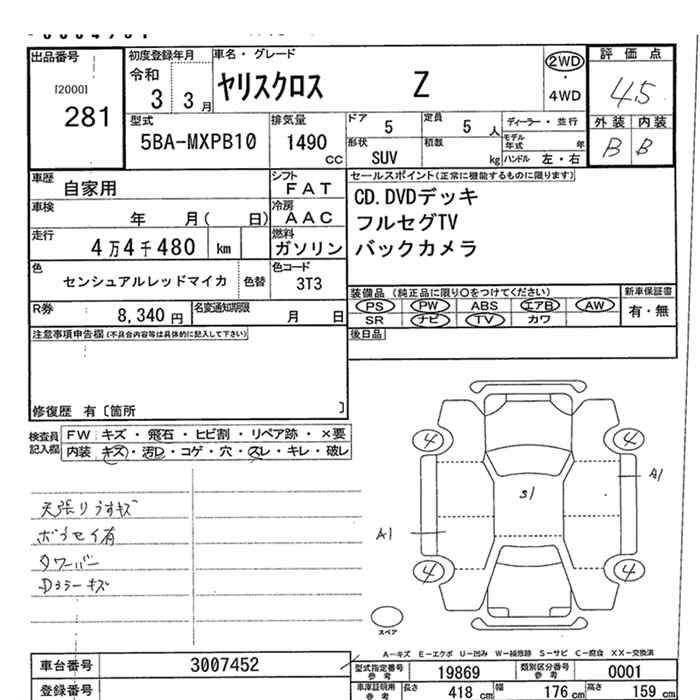 出品番号 初度登録年月 車名・グレード 評価点
[2000]
281
令和
3 3月
ヤリスクロス Z
2WD
・
4WD
4.5
型式 排気量 ドア 定員 ディーラー・並行 外装 内装
5BA-MXPB10 1490 cc 5 5 人 モデル年式 年 B B
形状 積載
SUV kg ハンドル 左・右
車歴 自家用 シフト FAT セールスポイント(正常に機能するものに限ります)
車検 年 月( 日) 冷房 AAC CD.DVDデッキ
フルセグTV
走行 4万4千480 km 燃料 ガソリン バックカメラ
色 センシュアルレッドマイカ 色替 色コード 3T3
装備品(純正品に限り○をつけてください) 新車保証書
PS PW ABS エアB AW 有・無
SR ナビ TV カワ
R券 8,340円 名変通知期限 月 日
注意事項申告欄(不具合内容等は具体的に記入して下さい) 後日品
修復歴 有〔箇所 〕
検査員記入欄 FW キズ・飛石・ヒビ割・リペア跡・×要
内装 キズ・汚D・コゲ・穴・スレ・キレ・破レ
天張りうすキズ
ボデセイ有
タワーバー
Dミラーキズ
4 4
A1
S1
A1
4 4
スペア
A-キズ E-エクボ U-凹み W-補修跡 S-サビ C-腐食 XX-交換済
車台番号 3007452 型式指定番号 参考 19869 類別区分番号 参考 0001
登録番号 車庫証明用 参考 長さ 418 cm 幅 176 cm 高さ 159 cm